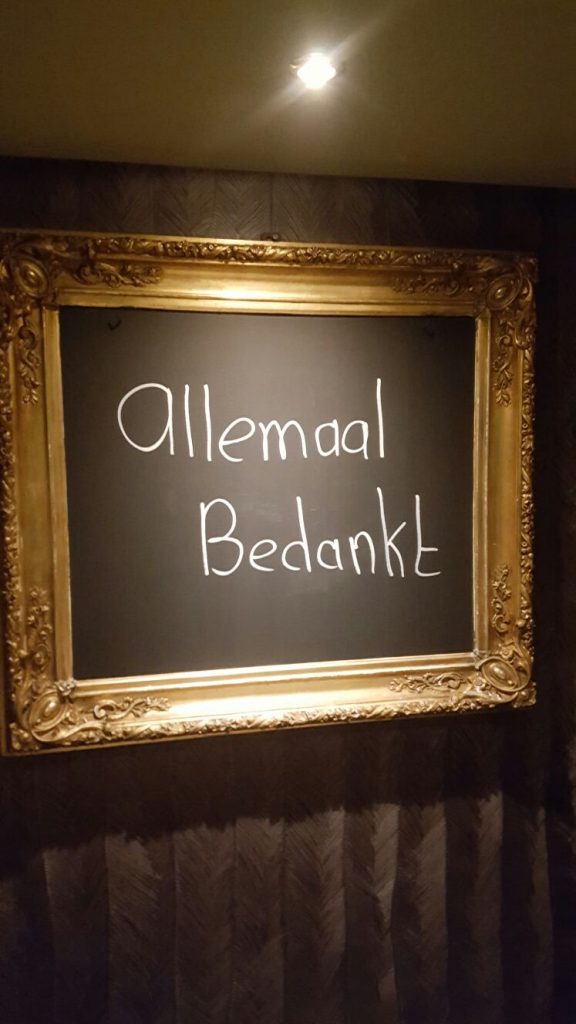 allemaal
Bedankt